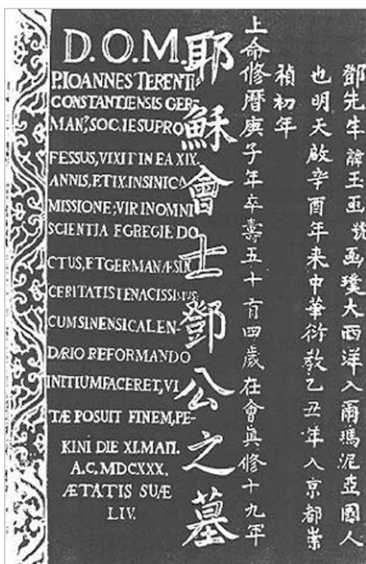 D.O.M.
P.IOANNES TERENTI⁹
CONSTANTIENSIS GER
MAN⁹, SOC. IESU PRO
FESSUS, VIXIT IN EA XIX.
ANNIS, ET IX. IN SINICA
MISSIONE; VIR IN OMNI
SCIENTIA EGREGIE DO
CTUS, ET GERMANÆ SIN
CERITATIS TENACISSIMUS
CUM SINENSI CALEN-
DARIO REFORMANDO
INITIUM FACERET, VI
TÆ POSUIT FINEM, PE-
KINI DIE XI. MAII.
A.C. MDCXXX.
ÆTATIS SUÆ
LIV.
耶穌會士鄧公之墓
鄧先生諱玉函號函璞大西洋入爾瑪尼亞國人
也明天啟辛酉年來中華衍教乙丑年入京都崇
禎初年
上命修曆庚子年卒壽五十有四歲在會真修十九年